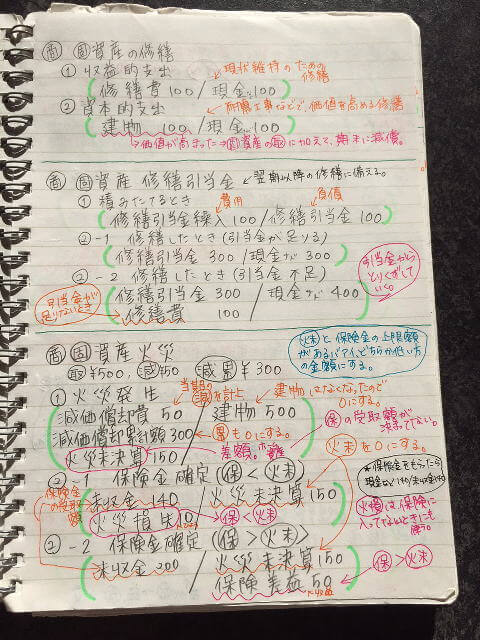 商 固資産の修繕
① 収益的支出 ← 現状維持のための修繕
修繕費 100 / 現金など 100
② 資本的支出 ← 耐震工事などで価値を高める修繕
建物 100 / 現金など 100
→価値が高まった→固資産の取に加えて、期末に減償。
商 固資産 修繕引当金 ← 翌期以降の修繕に備える。
① 積みたてるとき 費用 負債
修繕引当金繰入 100 / 修繕引当金 100
②-1 修繕したとき (引当金が足りる)
修繕引当金 300 / 現金など 300
②-2 修繕したとき (引当金不足)
引当金からとりくずしていく。
引当金が足りないとき
修繕引当金 300 / 現金など 400
修繕費 100
商 固資産火災
火未と保険金の上限額があるバアイ、どちらか低い方の金額にする。
取¥500、減¥50 減累¥300
① 火災発生 当期の減を計上 建物はなくなったので0にする。
減価償却費 50 / 建物 500
減価償却累計額 300 ← 累も0にする。
火災未決算 150 ← 差額。
保の受取額が決まってない。
火未を0にする。
②-1 保険金確定 (保 < 火未)
保険金の受取額
未収金 140 / 火災未決算 150
火災損失 10 → 保 < 火未
★保険金をもらったら
火損は保険に入ってないときにも使う。
②-2 保険金確定 (保 > 火未)
未収金 200 / 火災未決算 150
保険差益 50 ← 保 > 火未